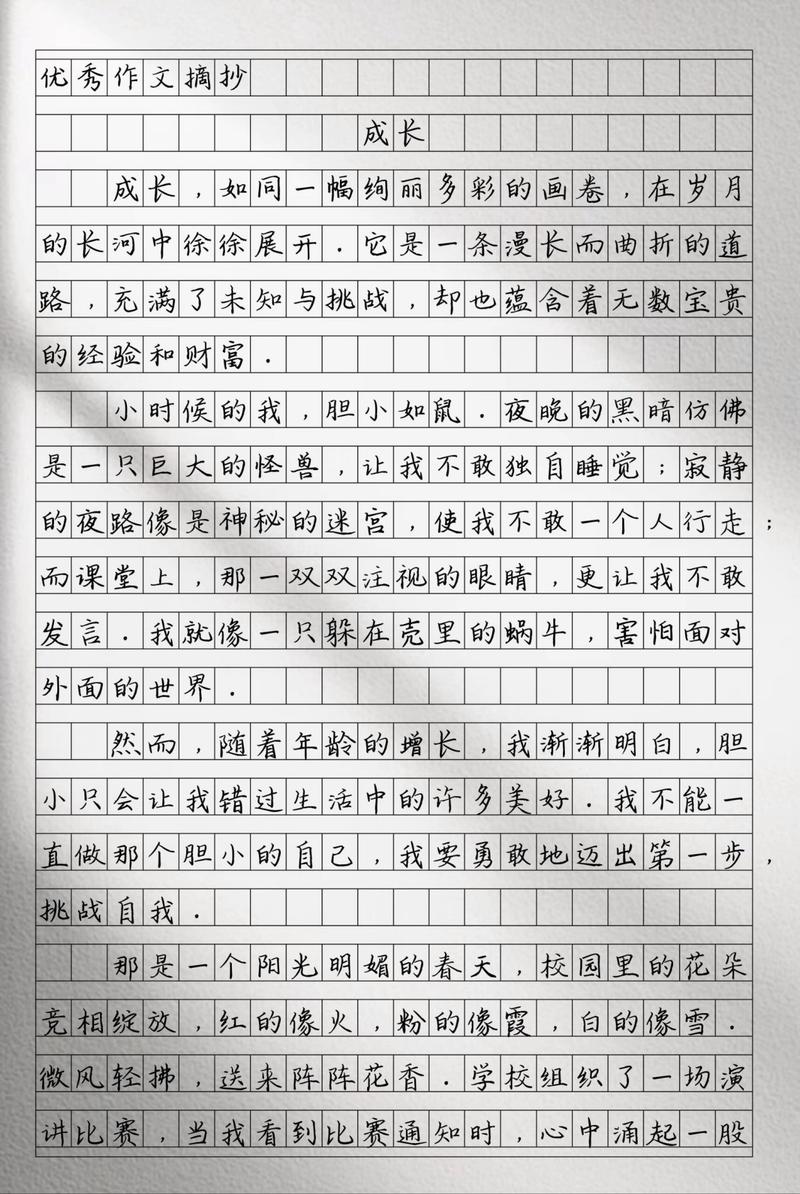 优秀作文摘抄
成长
成长，如同一幅绚丽多彩的画卷，在岁月
的长河中徐徐展开．它是一条漫长而曲折的道
路，充满了未知与挑战，却也蕴含着无数宝贵
的经验和财富．
小时候的我，胆小如鼠．夜晚的黑暗仿佛
是一只巨大的怪兽，让我不敢独自睡觉；寂静
的夜路像是神秘的迷宫，使我不敢一个人行走；
而课堂上，那一双双注视的眼睛，更让我不敢
发言．我就像一只躲在壳里的蜗牛，害怕面对
外面的世界．
然而，随着年龄的增长，我渐渐明白，胆
小只会让我错过生活中的许多美好．我不能一
直做那个胆小的自己，我要勇敢地迈出第一步，
挑战自我．
那是一个阳光明媚的春天，校园里的花朵
竞相绽放，红的像火，粉的像霞，白的像雪．
微风轻拂，送来阵阵花香．学校组织了一场演
讲比赛，当我看到比赛通知时，心中涌起一股